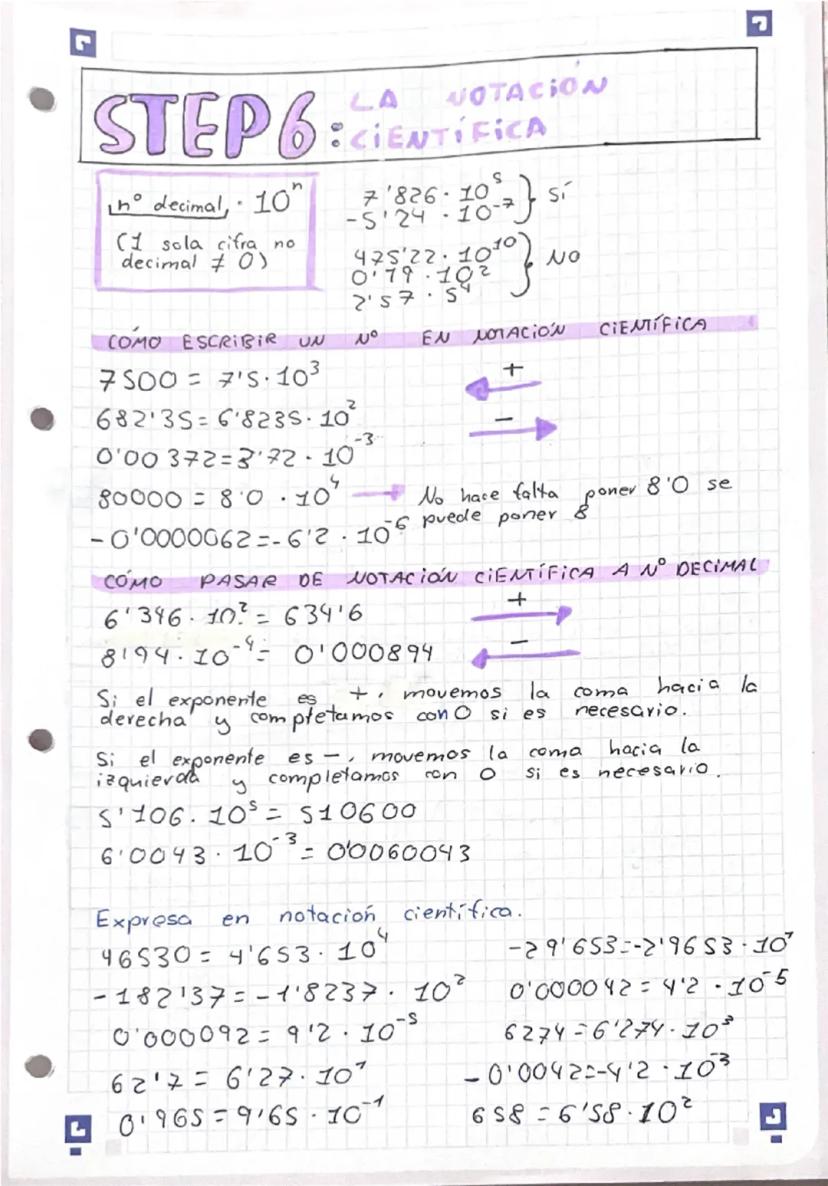 STEP 6: LA NOTACIÓN
CIENTÍFICA
nº decimal · 10ⁿ
(1 sola cifra no
decimal ≠ 0)
7'826 · 10⁵
-5'24 · 10⁻⁷
} SÍ
475'22 · 10¹⁰
0'79 · 10²
2'57 · 5⁴
} NO
CÓMO ESCRIBIR UN Nº EN NOTACIÓN CIENTÍFICA
7500 = 7'5 · 10³
+
682'35 = 6'8235 · 10²
-
0'00372 = 3'72 · 10⁻³
80000 = 8'0 · 10⁴ → No hace falta poner 8'0 se
puede poner 8
-0'0000062 = -6'2 · 10⁻⁶
CÓMO PASAR DE NOTACIÓN CIENTÍFICA A Nº DECIMAL
6'346 · 10² = 634'6
+
8'94 · 10⁻⁴ = 0'000894
-
Si el exponente es +, movemos la coma hacia la
derecha y completamos con 0 si es necesario.
Si el exponente es -, movemos la coma hacia la
izquierda y completamos con 0 si es necesario.
5'106 · 10⁵ = 510600
6'0043 · 10⁻³ = 0'0060043
Expresa en notación científica.
46530 = 4'653 · 10⁴
-29'653 = -2'9653 · 10¹
-182'137 = -1'8237 · 10²
0'000042 = 4'2 · 10⁻⁵
0'000092 = 9'2 · 10⁻⁵
6274 = 6'274 · 10³
62'7 = 6'27 · 10¹
-0'0042 = -4'2 · 10⁻³
0'965 = 9'65 · 10⁻¹
658 = 6'58 · 10²